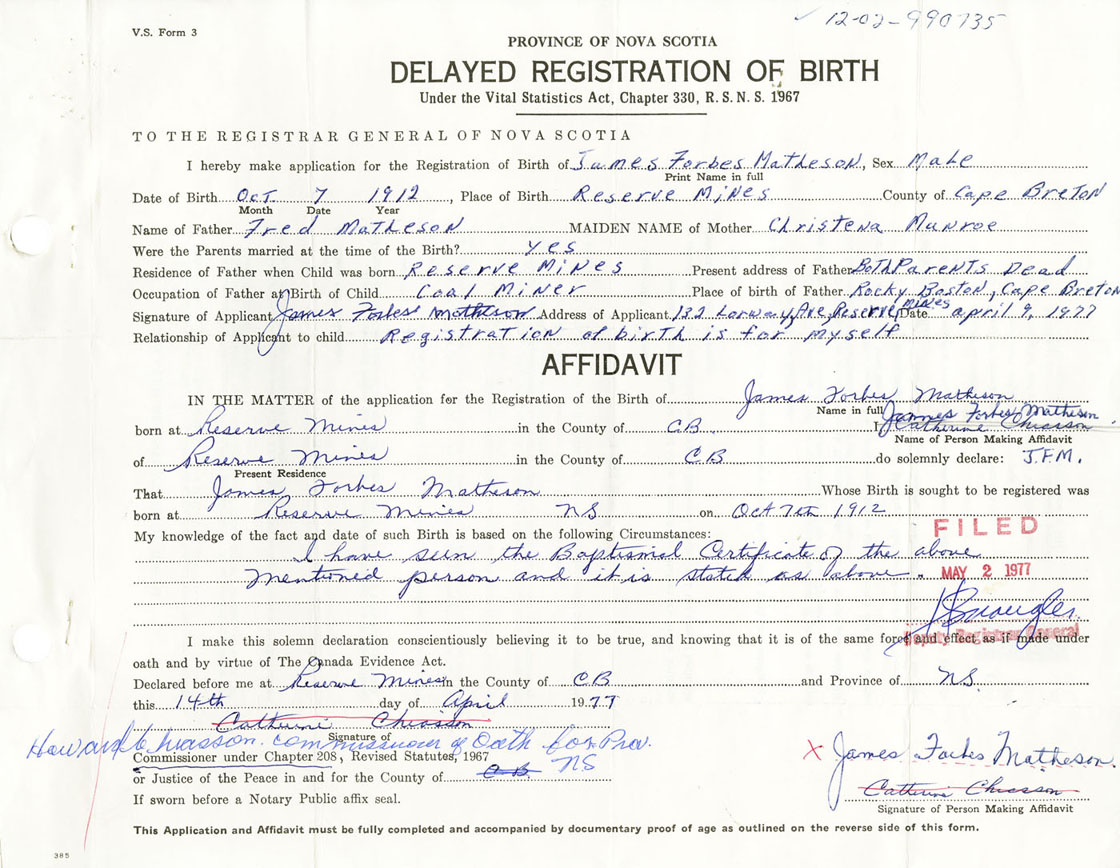 ✓ 12-02-990735
V.S. Form 3
PROVINCE OF NOVA SCOTIA
DELAYED REGISTRATION OF BIRTH
Under the Vital Statistics Act, Chapter 330, R. S. N. S. 1967
TO THE REGISTRAR GENERAL OF NOVA SCOTIA
I hereby make application for the Registration of Birth of James Forbes Matheson, Sex Male
Print Name in full
Date of Birth Oct 7 1912, Place of Birth Reserve Mines County of Cape Breton
Month Date Year
Name of Father Fred Matheson MAIDEN NAME of Mother Christena Munroe
Were the Parents married at the time of the Birth? yes
Residence of Father when Child was born Reserve Mines Present address of Father Both Parents Dead
Occupation of Father at Birth of Child Coal Miner Place of birth of Father Rocky Boston, Cape Breton
Signature of Applicant James Forbes Matheson Address of Applicant 132 Lorway Ave, Reserve Mines Date april 9, 1977
Relationship of Applicant to child Registration of birth is for myself
AFFIDAVIT
IN THE MATTER of the application for the Registration of the Birth of James Forbes Matheson
Name in full James Forbes Matheson
born at Reserve Mines in the County of C.B I, Catherine Chiasson
Name of Person Making Affidavit
of Reserve Mines in the County of C.B do solemnly declare: J.F.M.
Present Residence
That James Forbes Matheson Whose Birth is sought to be registered was
born at Reserve Mines NS on Oct 7th 1912
My knowledge of the fact and date of such Birth is based on the following Circumstances:
FILED
I have seen the Baptismal Certificate of the above
mentioned person and it is stated as above.
MAY 2 1977
Deputy Registrar General
I make this solemn declaration conscientiously believing it to be true, and knowing that it is of the same force and effect as if made under
oath and by virtue of The Canada Evidence Act.
Declared before me at Reserve Mines in the County of C.B and Province of N.S.
this 14th day of April 1977
Catherine Chiasson
Signature of
Howard Chiasson. Commissioner of Oath for Prov.
NS
Commissioner under Chapter 208, Revised Statutes, 1967
or Justice of the Peace in and for the County of C.B.
X James Forbes Matheson.
Catherine Chiasson
If sworn before a Notary Public affix seal.
Signature of Person Making Affidavit
This Application and Affidavit must be fully completed and accompanied by documentary proof of age as outlined on the reverse side of this form.
385